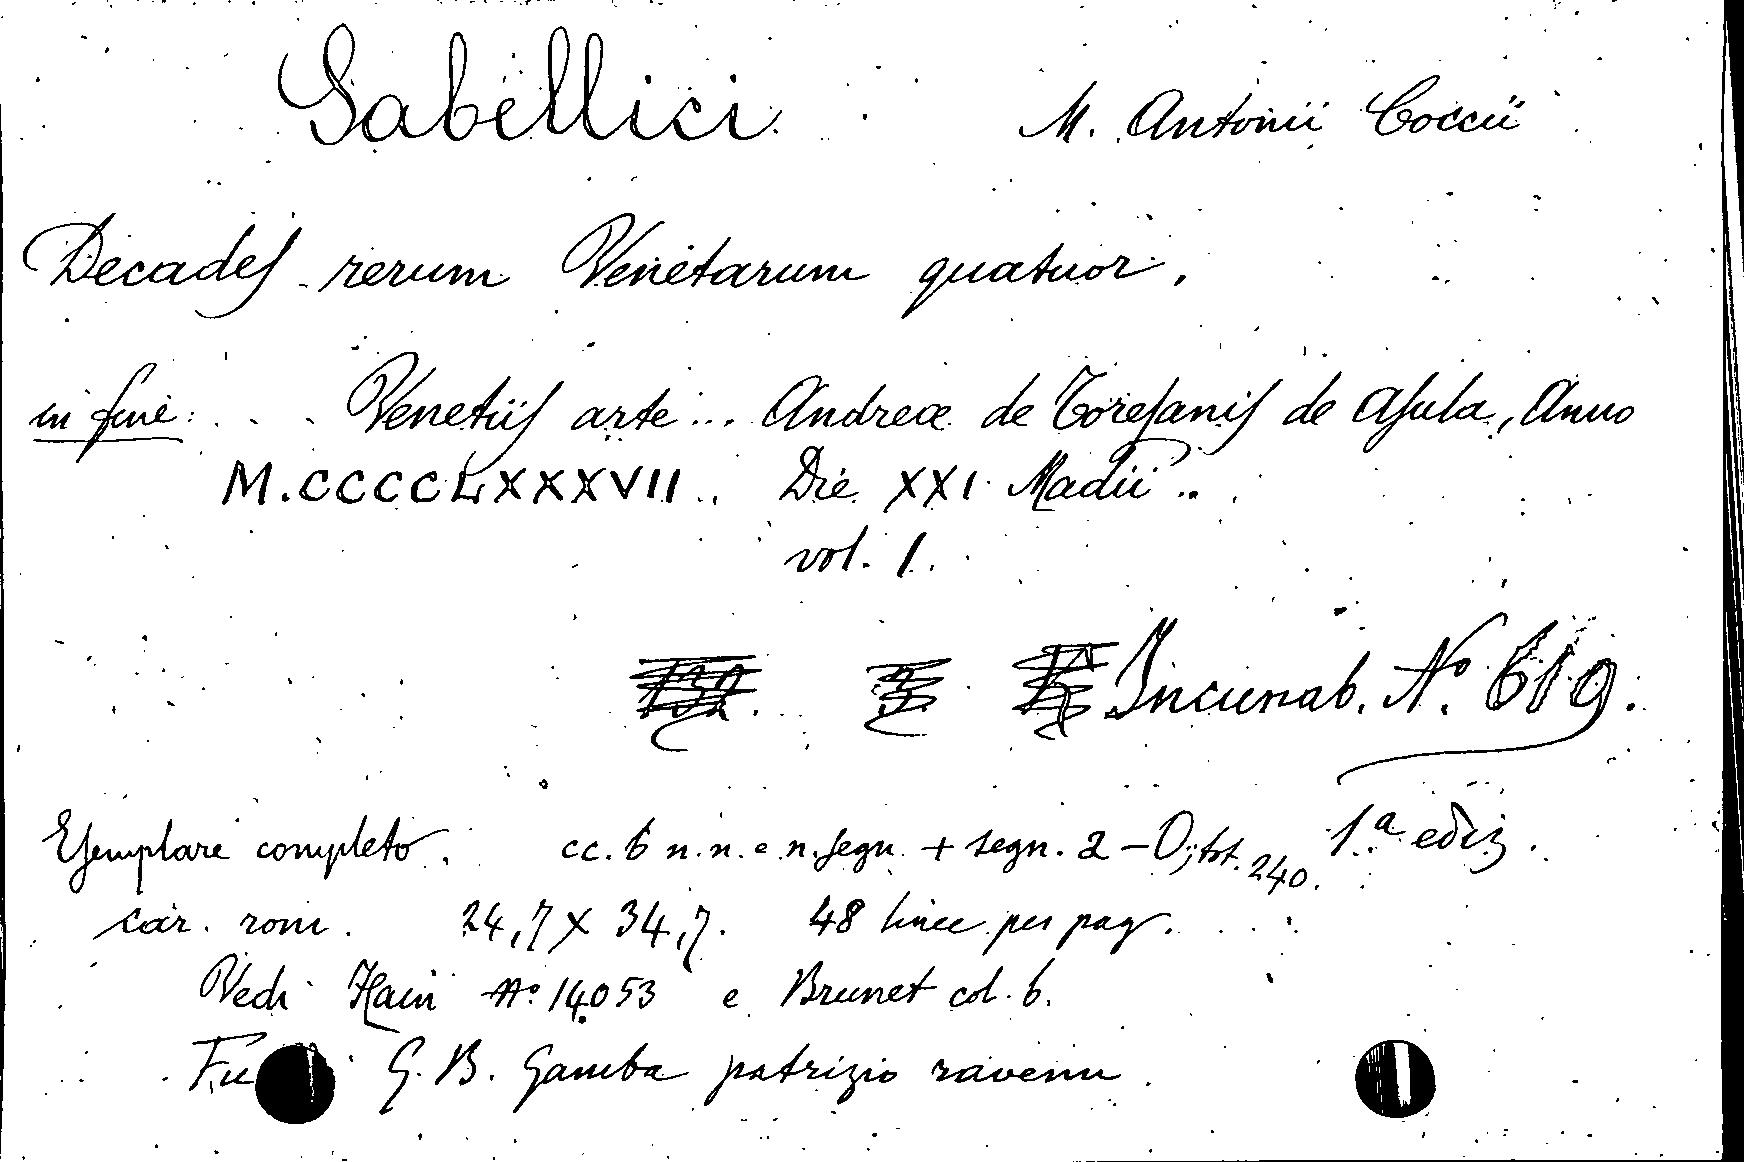 Sabellici M. Antonii Coccii
Decades rerum Venetarum quatuor.
in fine: . . . Venetiis arte... Andreæ de Toresanis de Asula, Anno
M.CCCCLXXXVII.. Die XXI Madii..
vol. 1.
Incunab. Nº 619.
Esemplare completo. cc. 6 n.n. e n. segn. + segn. a - O; tot. 240. 1.ª ediz.
car. rom. 24,7 x 34,7. 48 linee per pag.
Vedi Hain Nº 14053 e Brunet col. 6.
Fu G. B. Gamba patrizio ravenn.